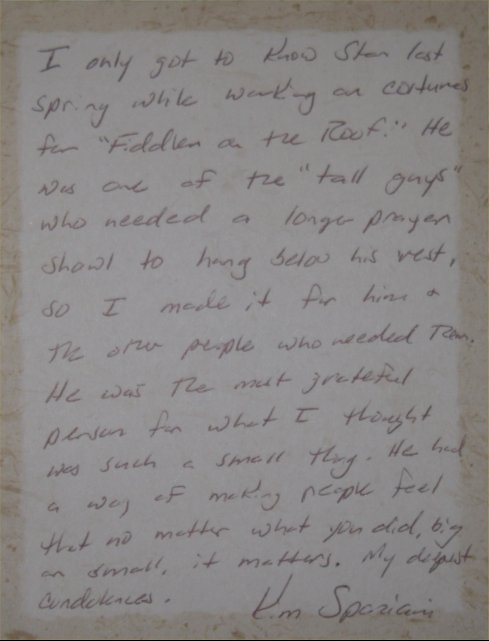 I only got to know Stan last
spring while working on costumes
for "Fiddler on the Roof." He
was one of the "tall guys"
who needed a longer prayer
shawl to hang below his vest,
so I made it for him &
the other people who needed them.
He was the most grateful
person for what I thought
was such a small thing. He had
a way of making people feel
that no matter what you did, big
or small, it matters. My deepest
condolences. Kim Spaziani